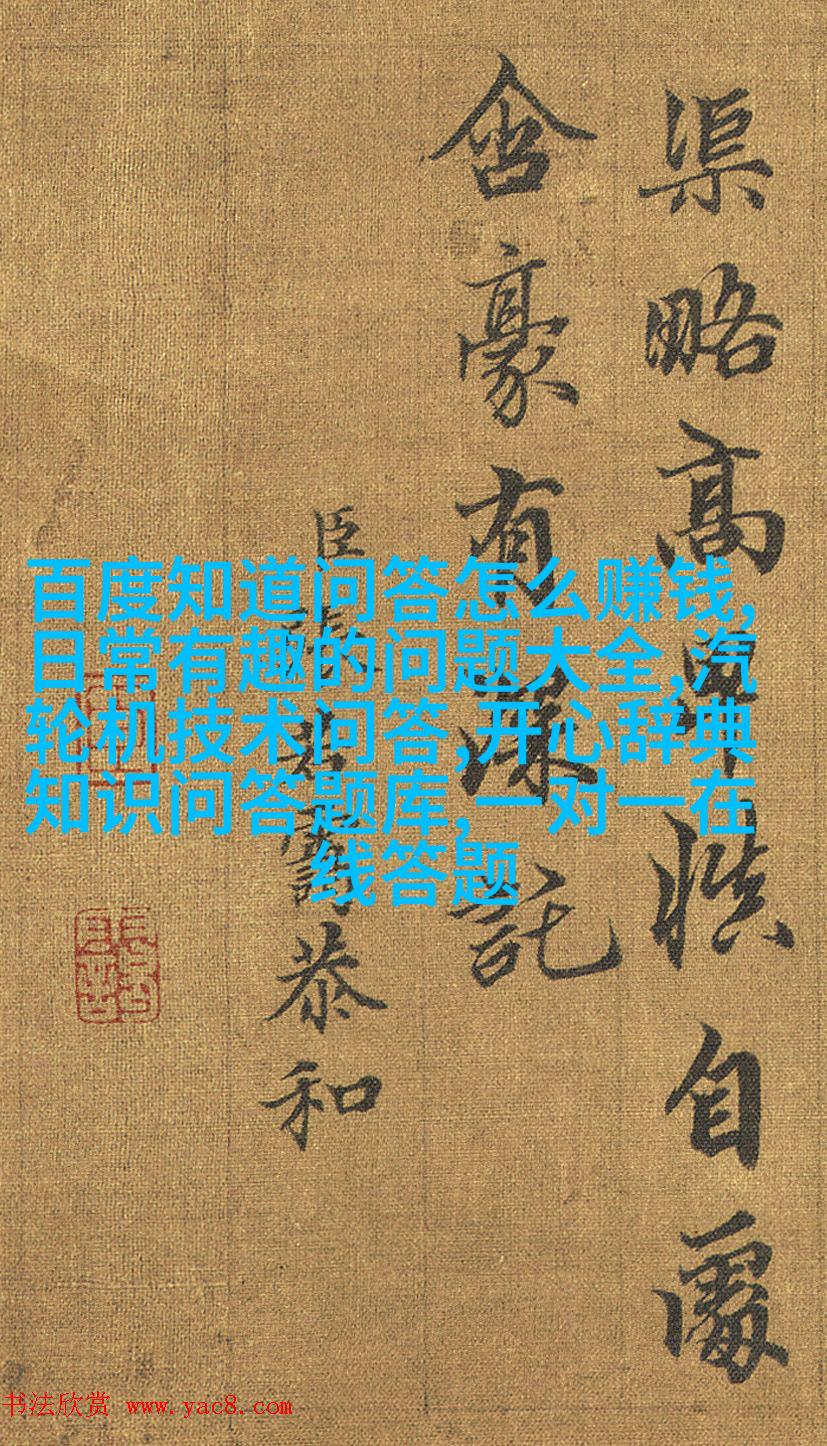 渠略高慎自處
含豪有深託
臣張若靄恭和
百度知道问答怎么赚钱,
日常有趣的问题大全,汽
轮机技术问答,开心辞典
知识问答题库,一对一在
线答题
书法欣赏 www.yac8.com